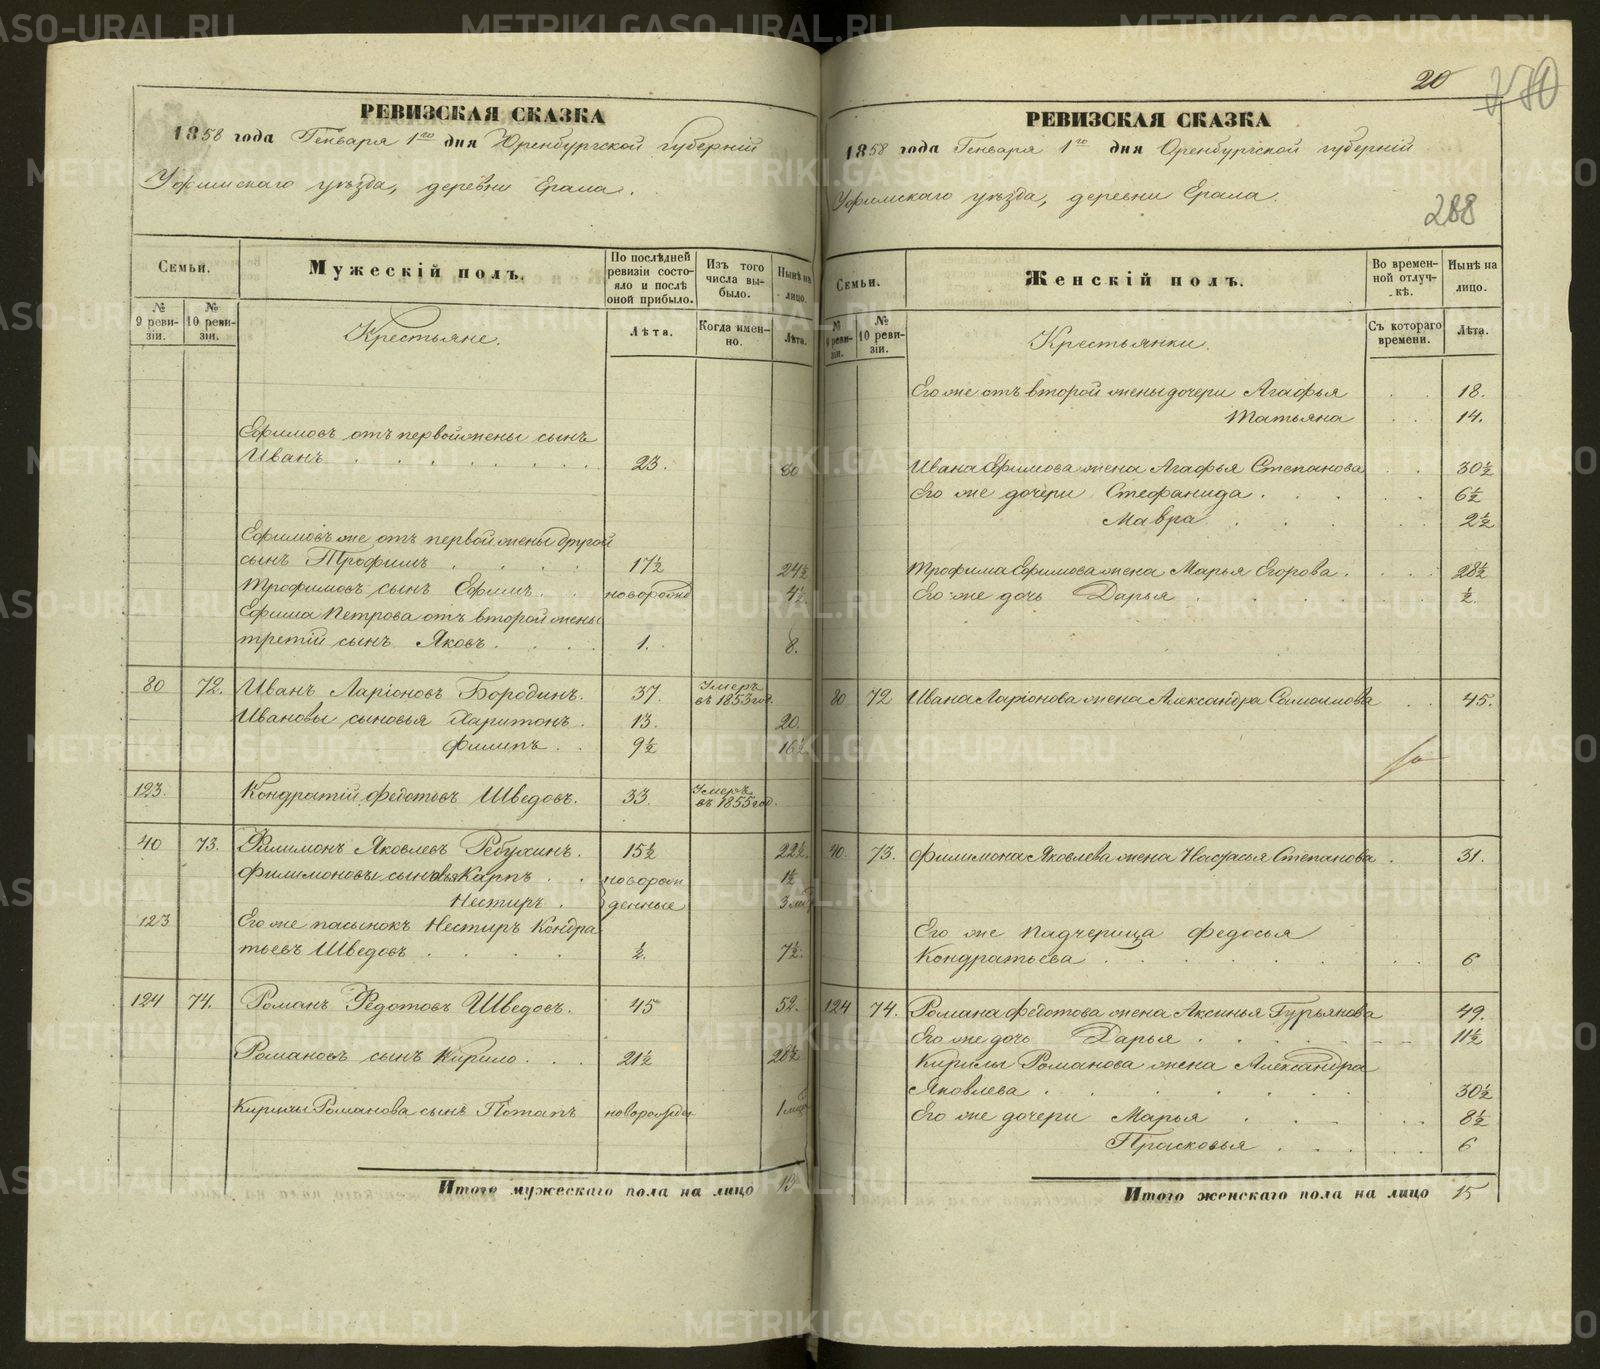 РЕВИЗСКАЯ СКАЗКА
1858 года Генваря 1го дня Оренбургской губерніи
Уфимскаго уѣзда, деревни Ерала.
Семьи.
Мужескій полъ.
По послѣдней ревизіи состояло и послѣ оной прибыло.
Изъ того числа выбыло.
Нынѣ на лицо.
№ 9 ревизіи.
№ 10 ревизіи.
Крестьяне.
Лѣта.
Когда именно.
Лѣта.
Ефимовъ отъ первой жены сынъ
Иванъ 23. 30
Ефимовъ же отъ первой жены другой
сынъ Трофимъ 17½ 24½
Трофимовъ сынъ Ефимъ новорожд 4½
Ефима Петрова отъ второй жены
третій сынъ Яковъ 1. 8.
80 72. Иванъ Ларіоновъ Бородинъ. 37. Умеръ въ 1853 год.
Ивановы сыновья Харитонъ. 13. 20
Филипъ 9½ 16½
123. Кондратій Федотовъ Шведовъ. 33. Умеръ въ 1855 год.
40 73. Филимонъ Яковлевъ Ребухинъ. 15½ 22½
Филимоновы сыновья Карпъ новорож 1½
Нестиръ денные 3 мѣс
123 Его же пасынокъ Нестиръ Кондра
тьевъ Шведовъ ½. 7½.
124 74. Романъ Федотовъ Шведовъ. 45 52.
Романовъ сынъ Кирило 21½ 28½
Кирилы Романова сынъ Потапъ новорожден 1 мѣс
Итого мужескаго пола на лицо 13
20
270
РЕВИЗСКАЯ СКАЗКА
1858 года Генваря 1го дня Оренбургской губерніи
Уфимскаго уѣзда, деревни Ерала.
288
Семьи.
Женскій полъ.
Во временной отлучкѣ.
Нынѣ на лицо.
№ 9 ревизіи.
№ 10 ревизіи.
Крестьянки.
Съ котораго времени.
Лѣта.
Его же отъ второй жены дочери Агафья 18.
Татьяна 14.
Ивана Ефимова жена Агафья Степанова 30½
Его же дочери Стефанида 6½
Мавра 2½
Трофима Ефимова жена Марья Егорова. 28½
Его же дочь Дарья ½.
80 72 Ивана Ларіонова жена Александра Самоилова 45.
40. 73. Филимона Яковлева жена Настасья Степанова 31.
Его же падчерица Федосья
Кондратьева 6
124 74. Романа Федотова жена Аксинья Гурьянова 49.
Его же дочь Дарья 11½
Кирилы Романова жена Александра
Яковлева 30½
Его же дочери Марья 8½
Прасковья 6
Итого женскаго пола на лицо 15
METRIKI.GASO-URAL.RU